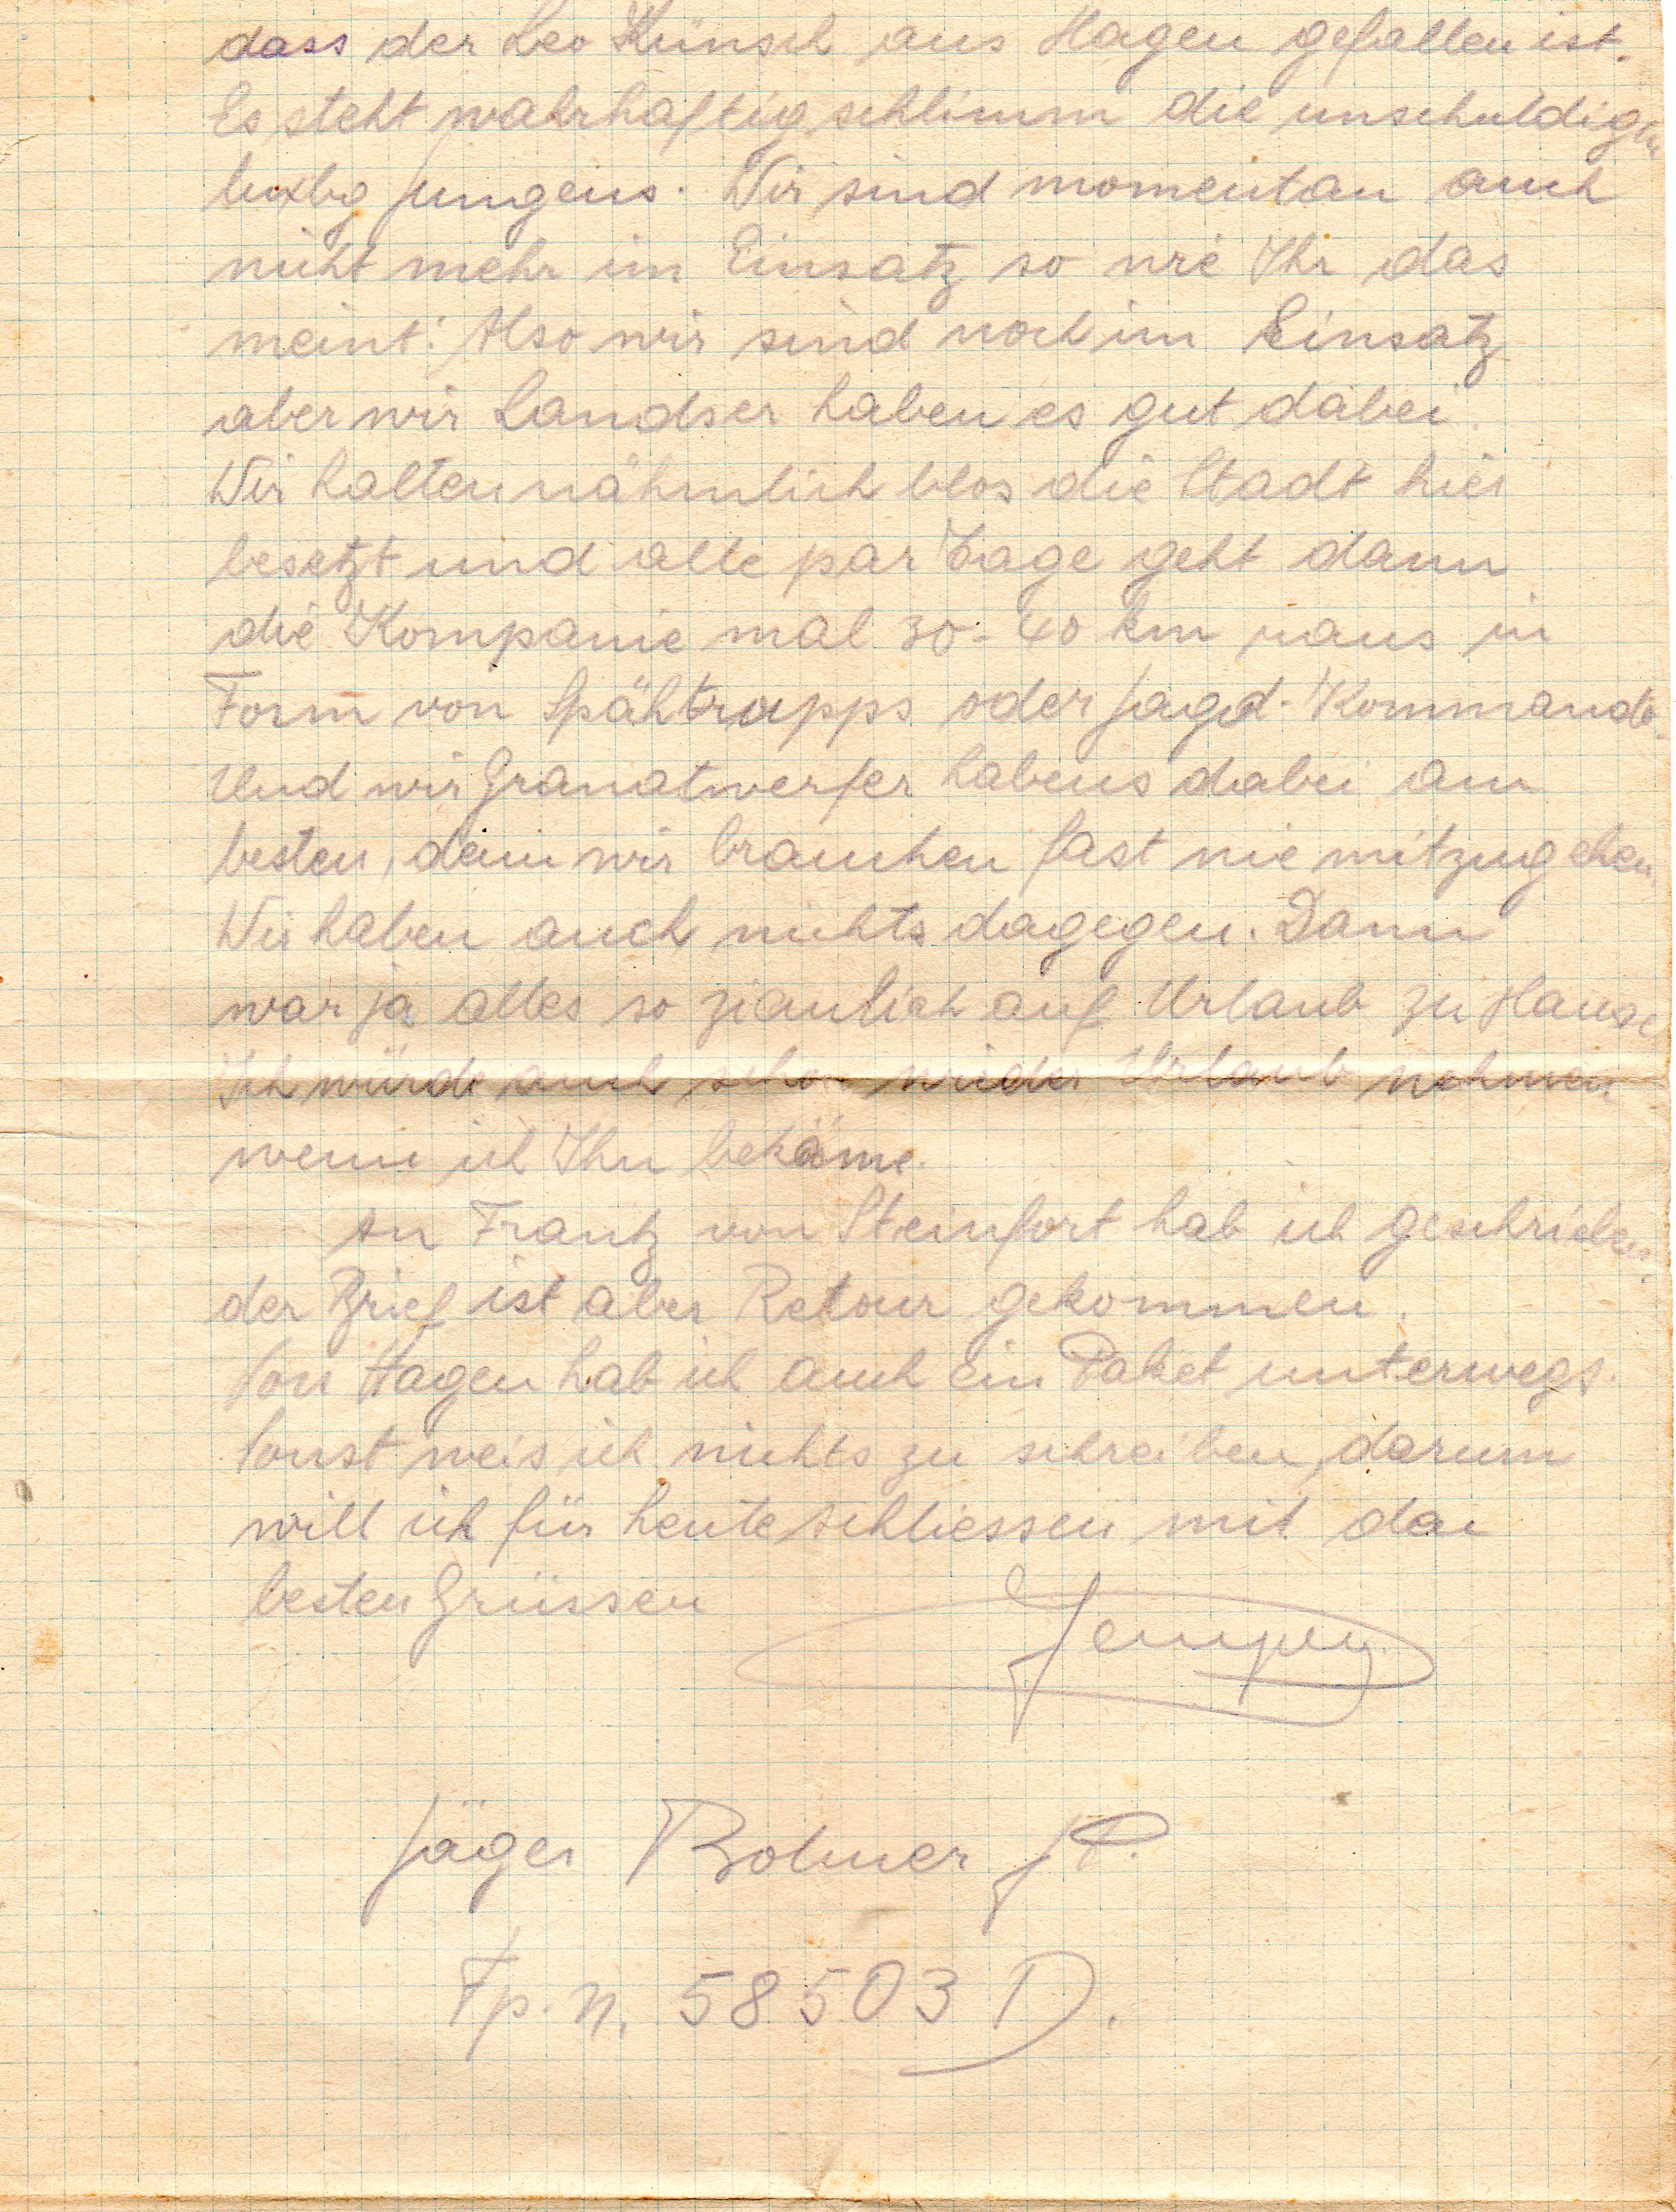 dass der Leo Künsch aus Hagen gefallen ist.
Es steht wahrhaftig schlimm die unschuldigen
luxbg Jungens. Wir sind momentan auch
nicht mehr im Einsatz so wie Ihr das
meint. Also wir sind noch im Einsatz
aber wir Landser haben es gut dabei.
Wir halten nähmlich blos die Stadt hier
besetzt und alle par Tage geht dann
die Kompanie mal 30-40 km raus in
Form von Spähtrupps oder Jagd-Kommando.
Und wir Granatwerfer habens dabei am
besten, denn wir brauchen fast nie mitzugehen.
Wir haben auch nichts dagegen. Dann
war ja alles so ziemlich auf Urlaub zu Hause
Ich würde auch schon wieder Urlaub nehmen
wenn ich Ihn bekäme.
An Frantz von Steinfort hab ich geschrieben.
der Brief ist aber Retour gekommen.
Von Hagen hab ich auch ein Paket unterwegs.
Sonst weis ich nichts zu schreiben, darum
will ich für heute schliessen mit den
besten Grüssen
Jempy
Jäger Bohmer JP.
Fp. N. 58503 D.